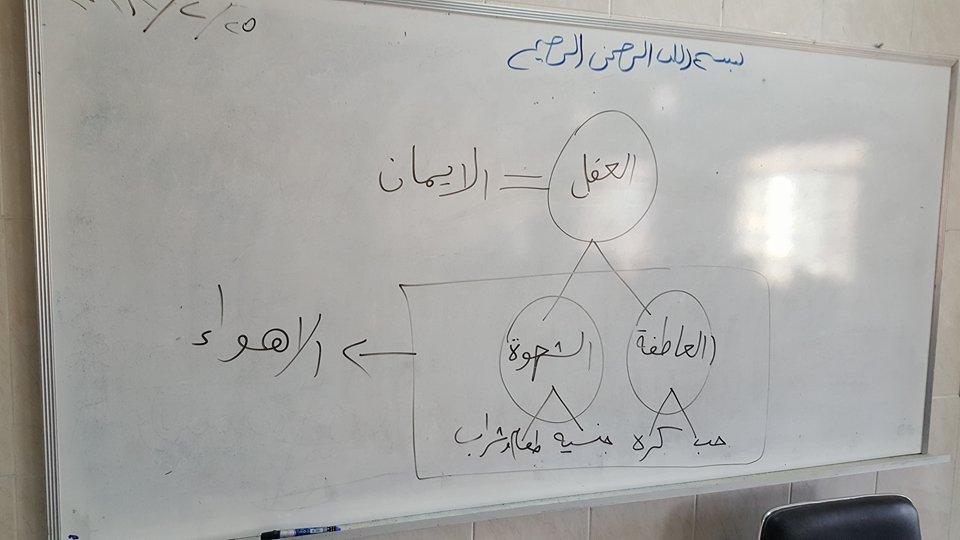 بسم الله الرحمن الرحيم
العقل = الايمان
العاطفة
الشهوة
الاهواء
حب كره
جنسيه طعام وشراب